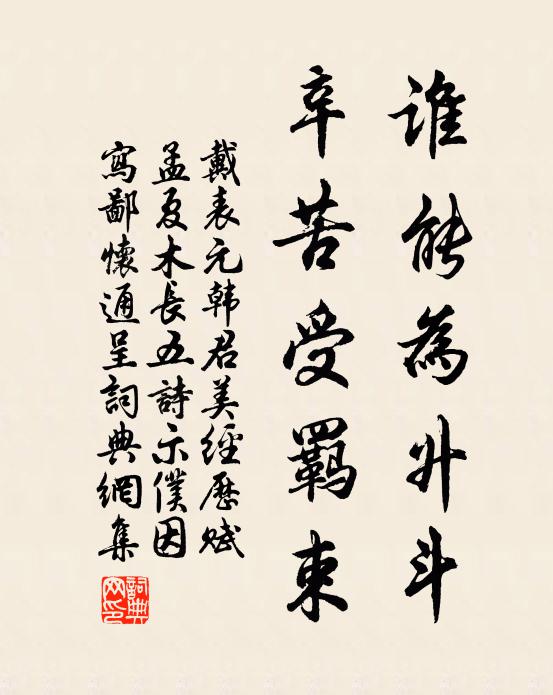 誰能為升斗
辛苦受羈束
戴表元韩君美經歷賦
孟夏木長五詩示僕因
寫鄙懷通呈詞典網集
詞典
网印